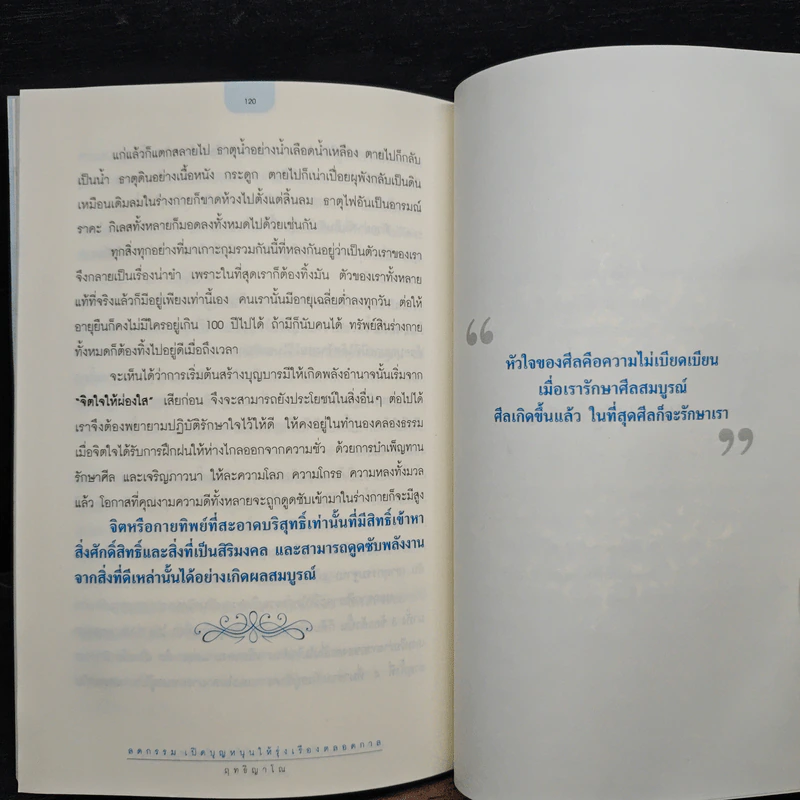 120
แก่แล้วก็แตกสลายไป ธาตุน้ำอย่างน้ำเลือดน้ำเหลือง ตายไปก็กลับ
เป็นน้ำ ธาตุดินอย่างเนื้อหนัง กระดูก ตายไปก็เน่าเปื่อยผุพังกลับเป็นดิน
เหมือนเดิมลมในร่างกายก็ขาดห้วงไปตั้งแต่สิ้นลม ธาตุไฟอันเป็นอารมณ์
ราคะ กิเลสทั้งหลายก็มอดลงทั้งหมดไปด้วยเช่นกัน
ทุกสิ่งทุกอย่างที่มาเกาะกุมรวมกันนี้ที่หลงกันอยู่ว่าเป็นตัวเราของเรา
จึงกลายเป็นเรื่องน่าขำ เพราะในที่สุดเราก็ต้องทิ้งมัน ตัวของเราทั้งหลาย
แท้ที่จริงแล้วก็มีอยู่เพียงเท่านี้เอง คนเรานั้นมีอายุเฉลี่ยต่ำลงทุกวัน ต่อให้
อายุยืนก็คงไม่มีใครอยู่เกิน 100 ปีไปได้ ถ้ามีก็นับคนได้ ทรัพย์สินร่างกาย
ทั้งหมดก็ต้องทิ้งไปอยู่ดีเมื่อถึงเวลา
จะเห็นได้ว่าการเริ่มต้นสร้างบุญบารมีให้เกิดพลังอำนาจนั้นเริ่มจาก
"จิตใจให้ผ่องใส" เสียก่อน จึงจะสามารถยังประโยชน์ในสิ่งอื่นๆ ต่อไปได้
เราจึงต้องพยายามปฏิบัติรักษาใจไว้ให้ดี ให้คงอยู่ในทำนองคลองธรรม
เมื่อจิตใจได้รับการฝึกฝนให้ห่างไกลออกจากความชั่ว ด้วยการบำเพ็ญทาน
รักษาศีล และเจริญภาวนา ให้ละความโลภ ความโกรธ ความหลงทั้งมวล
แล้ว โอกาสที่คุณงามความดีทั้งหลายจะถูกดูดซับเข้ามาในร่างกายก็จะมีสูง
จิตหรือกายทิพย์ที่สะอาดบริสุทธิ์เท่านั้นที่มีสิทธิ์เข้าหา
สิ่งศักดิ์สิทธิ์และสิ่งที่เป็นสิริมงคล และสามารถดูดซับพลังงาน
จากสิ่งที่ดีเหล่านั้นได้อย่างเกิดผลสมบูรณ์
ลดกรรม เปิดบุญหนุนให้รุ่งเรืองตลอดกาล
ฤทธิญาโณ
“
หัวใจของศีลคือความไม่เบียดเบียน
เมื่อเรารักษาศีลสมบูรณ์
ศีลเกิดขึ้นแล้ว ในที่สุดศีลก็จะรักษาเรา
”